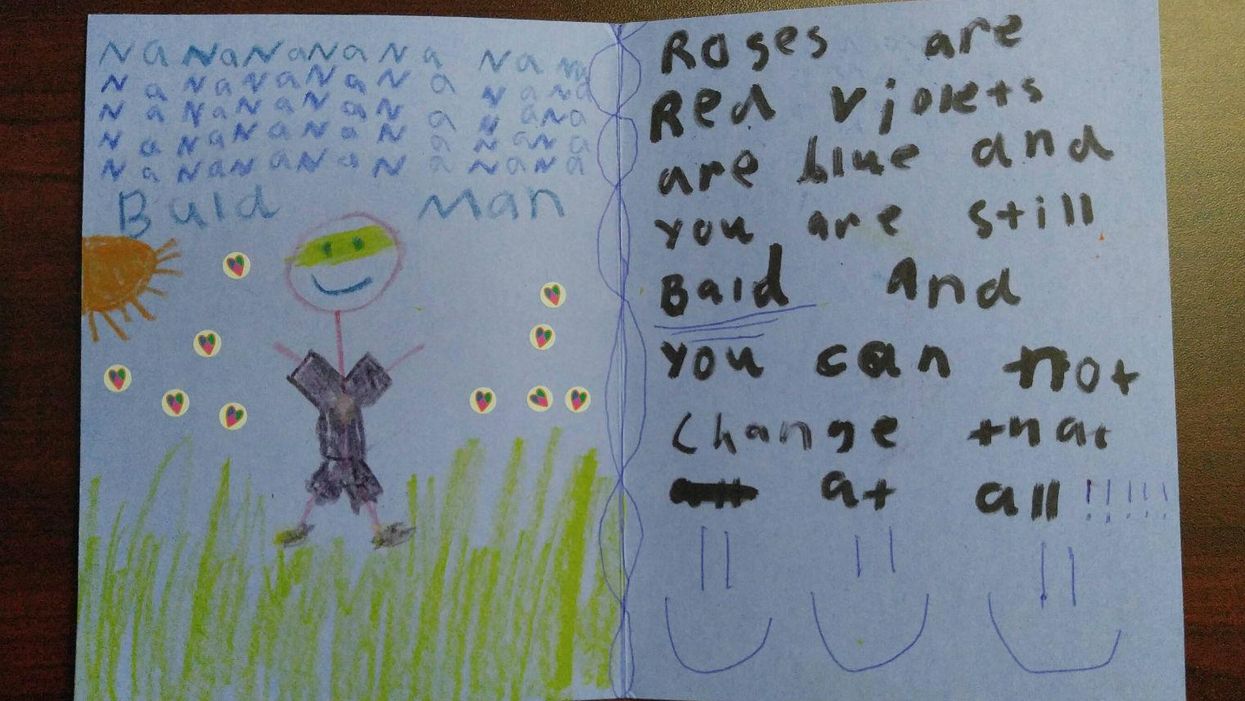 Na NaNaNaNa Na Na
Na NaNaNaNa NaNa
Na NaNaNaNa NaNa
Na NaNaNaNa NaNa
Na NaNaNaNa NaNa
Bald Man
Roses are
Red violets
are blue and
you are still
Bald And
you can not
change that
at all !!!!!